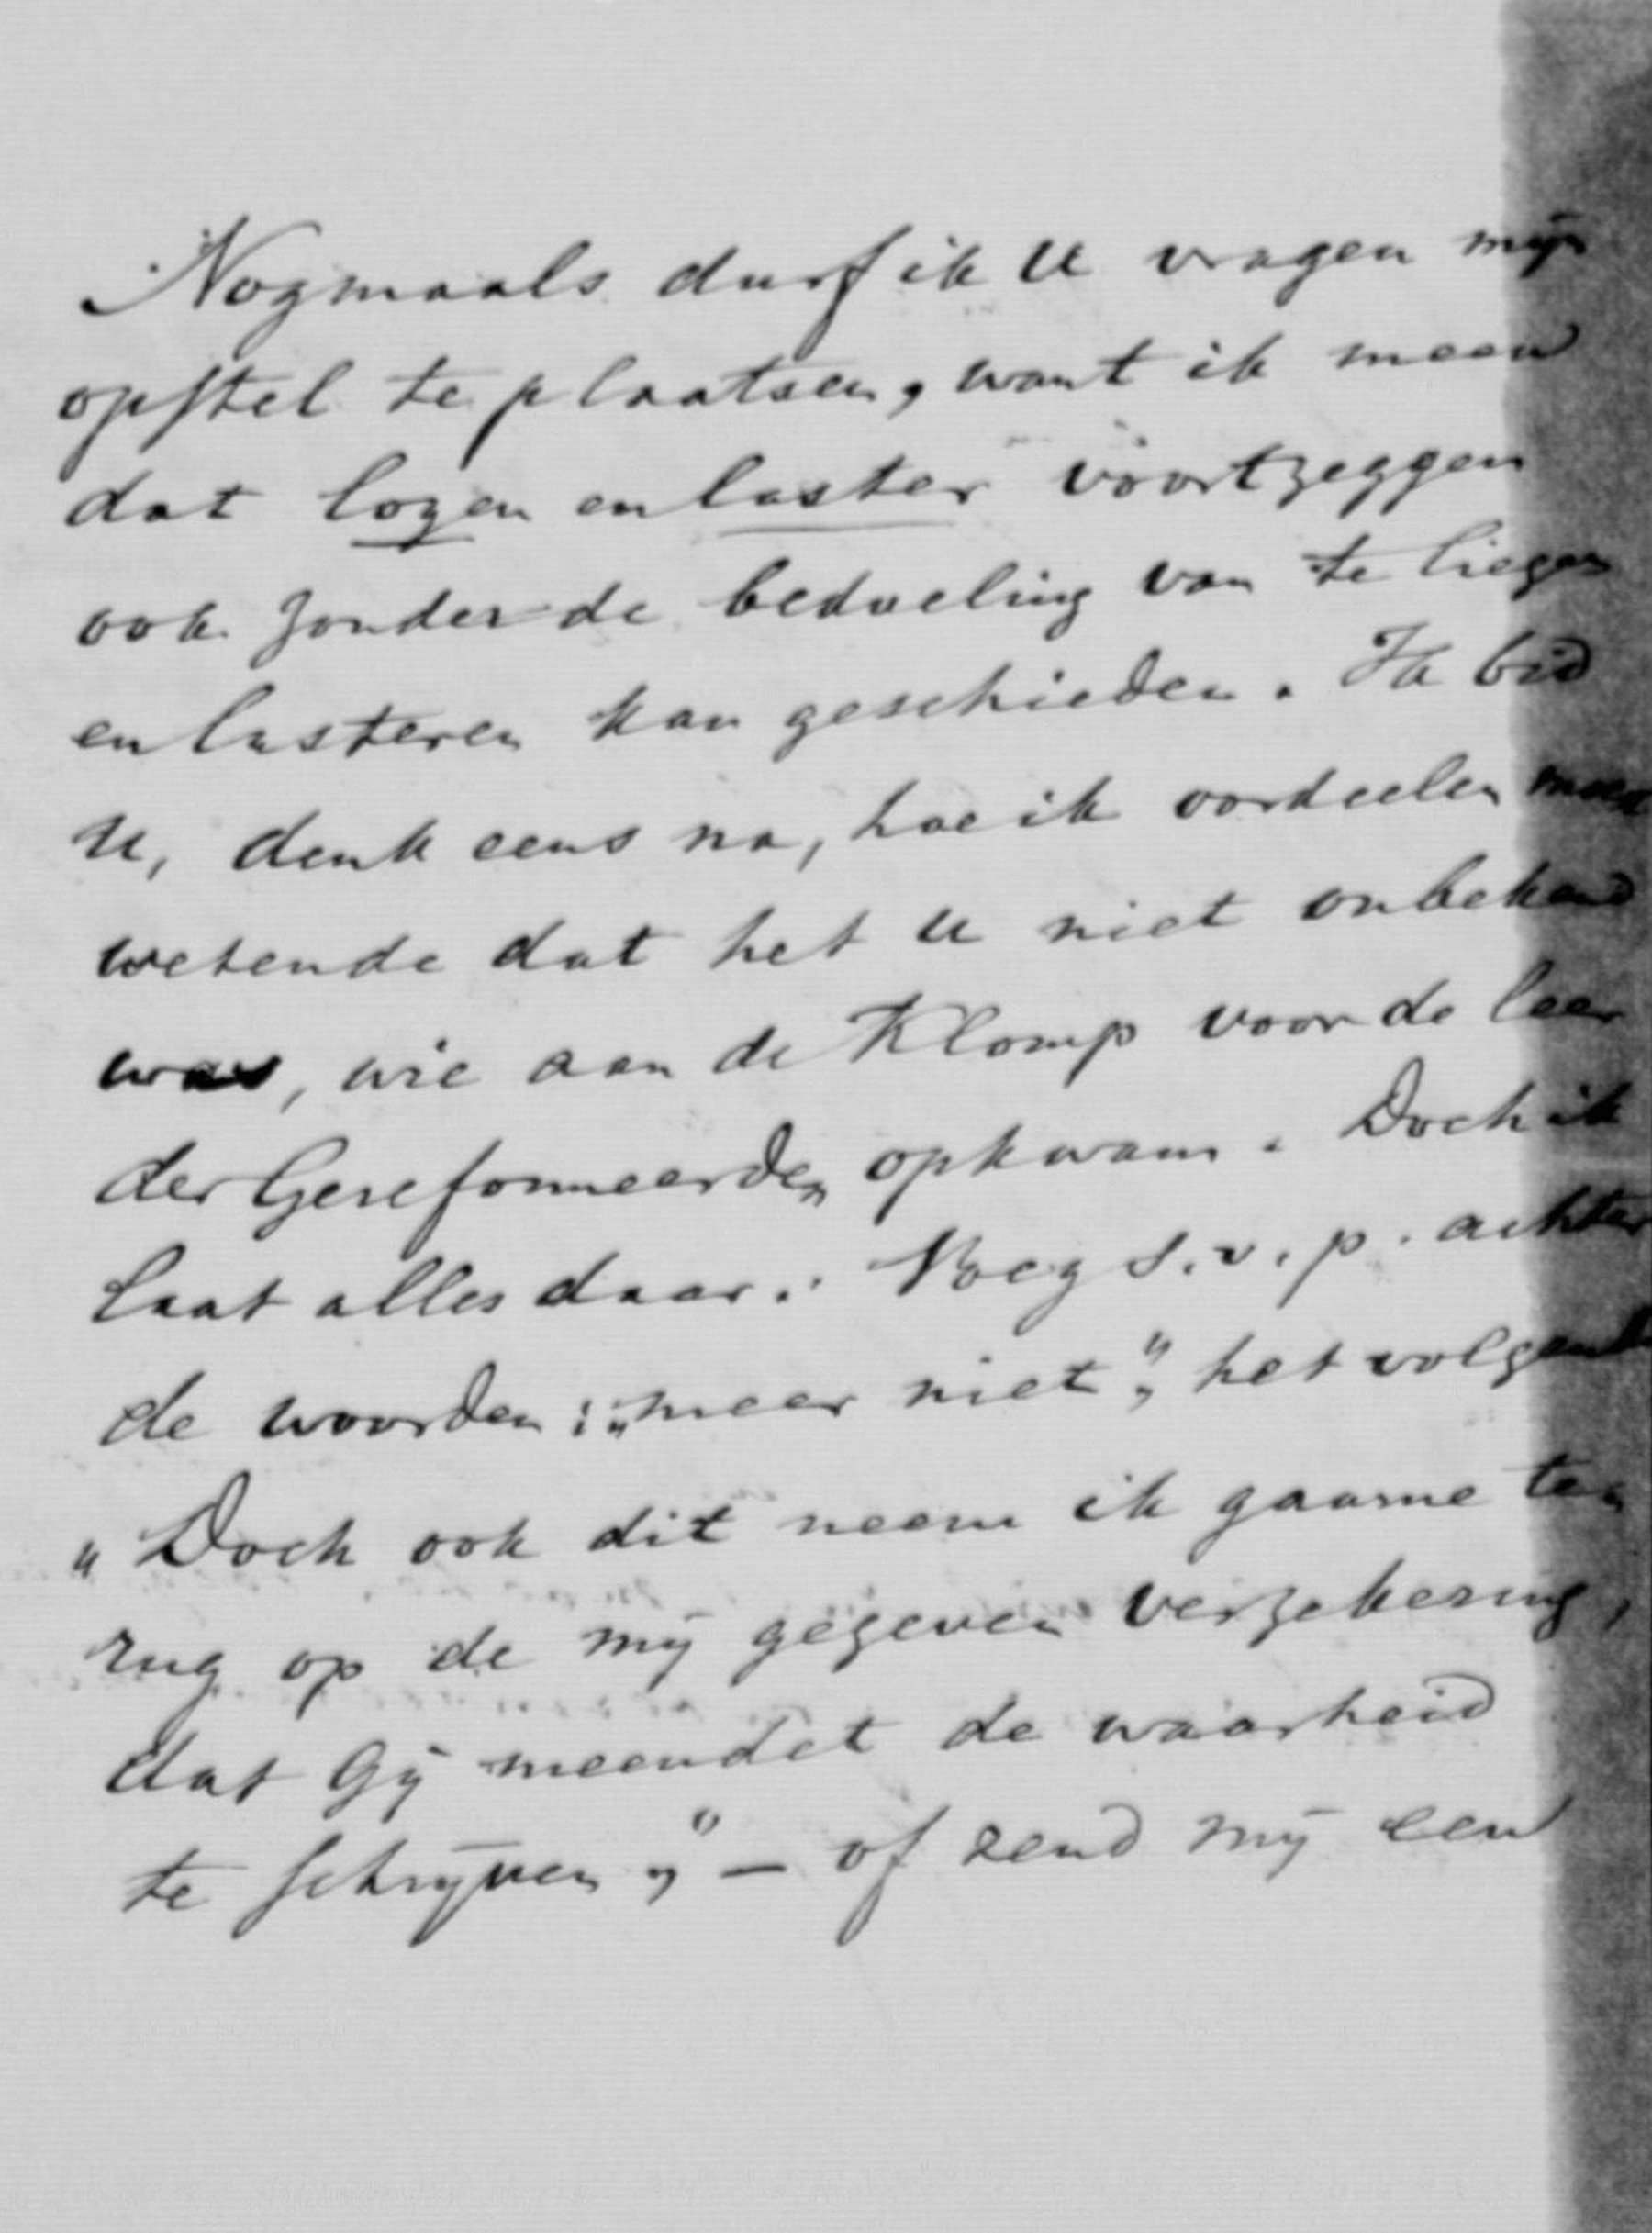 Nogmaals durf ik U vragen mijn
opstel te plaatsen, want ik meen
dat logen en laster voortzeggen
ook zonder de bedoeling van te liegen
en lasteren kan geschieden. Ik bid
U, denk eens na, hoe ik oordeelen moet
wetende dat het U niet onbekend
was, wie aan de Klomp voor de leer
der Gereformeerden opkwam. Doch ik
laat alles daar. Voeg s.v.p. achter
de woorden: „meer niet”, het volgende
„Doch ook dit neem ik gaarne te
rug op de mij gegeven verzekering,
dat Gij meendet de waarheid
te schrijven,” — of zend mij een